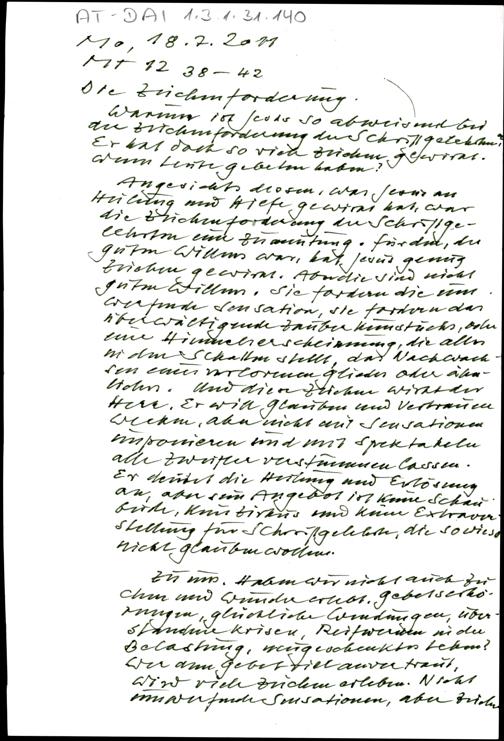 AT-DAI 1.3.1.31.140
Mo, 18.7.2011
Mt 12 38-42
Die Zeichenforderung.
Warum ist Jesus so abweisend bei
der Zeichenforderung der Schriftgelehrten?
Er hat doch so viele Zeichen gewirkt.
wenn Leute gebeten haben?
Angesichts dessen, was Jesus an
Heilung und Hilfe gewirkt hat, war
die Zeichenforderung der Schriftge-
lehrten eine Zumutung. Für den, der
guten Willens war, hat Jesus genug
Zeichen gewirkt. Aber die sind nicht
guten Willens. Sie fordern die um-
werfende Sensation, sie fordern das
überwältigende Zauberkunststück, oder
eine Himmelserscheinung, die alles
in den Schatten stellt, das Nachwach-
sen eines verlorenen Gliedes oder ähn-
liches. Und diese Zeichen wirkt der
Herr. Er will Glauben und Vertrauen
wecken, aber nicht mit Sensationen
imponieren und mit Spektakeln
alle Zweifler verstummen lassen.
Er deutet die Heilung und Erlösung
an, aber sein Angebot ist keine Schau
bude, kein Zirkus und keine Extravor-
stellung für Schriftgelehrte, die sowieso
nicht glauben wollen.
Zu uns. Haben wir nicht auch Zei
chen und Wunder erlebt. Gebetserhö-
rungen, glückliche Wendungen, über-
standene Krisen, Reifwerden in der
Belastung, neugeschenktes Leben?
Wer dem Gebet viel anvertraut,
wird viele Zeichen erleben. Nicht
umwerfende Sensationen, aber Zeichen